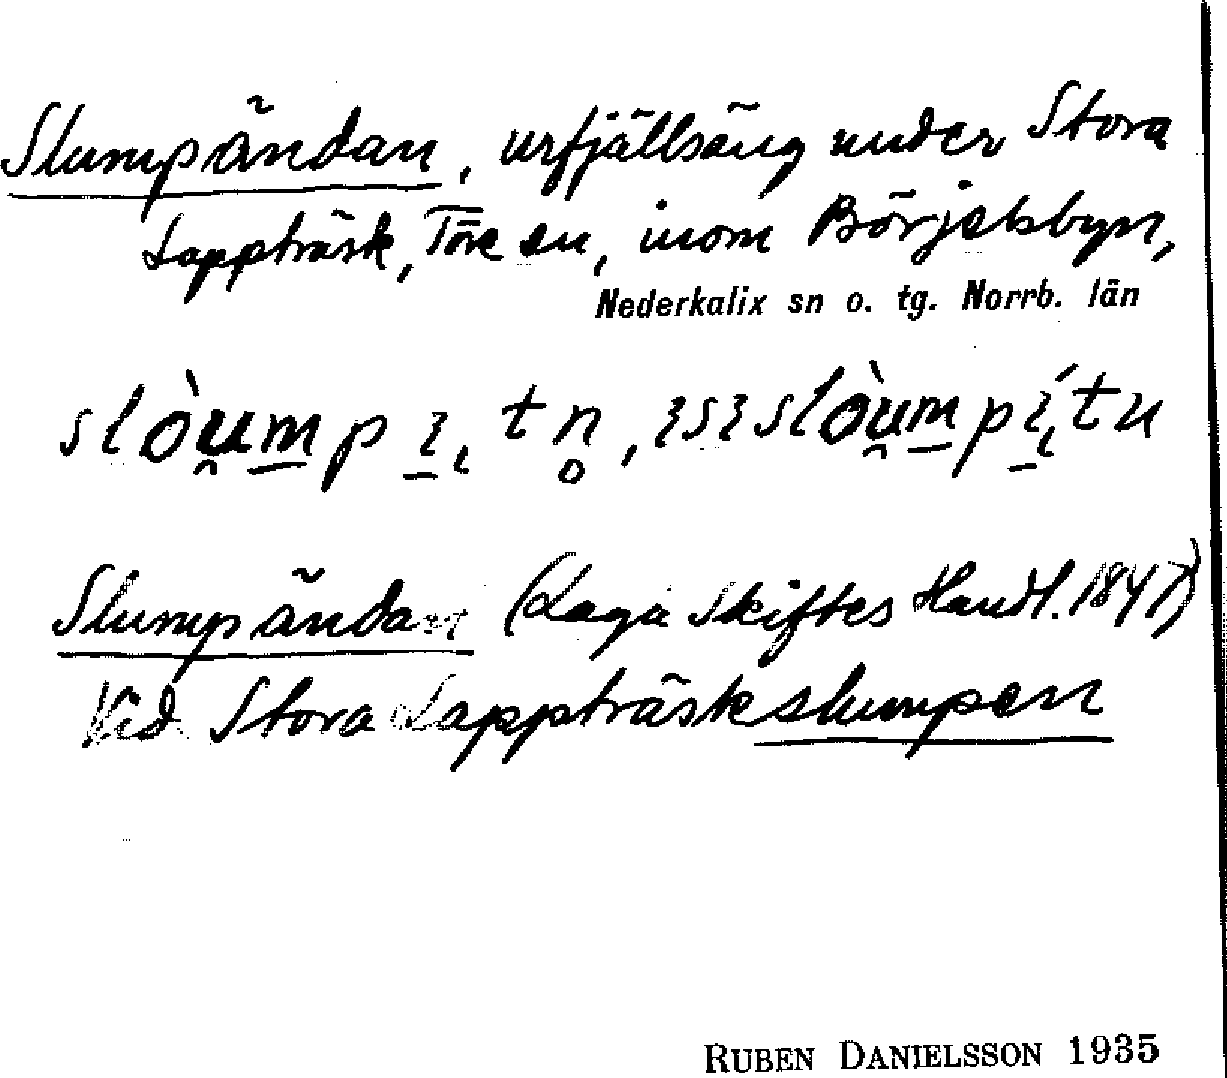 Slumpändan, urfjällsäng under Stora
Lappträsk, Töre sn, inom Börjelsbyn,
Nederkalix sn o. tg. Norrb. län
Slumpändan (Laga Skiftes Handl. 1847)
Vid Stora Lappträskslumpen
RUBEN DANIELSSON 1935